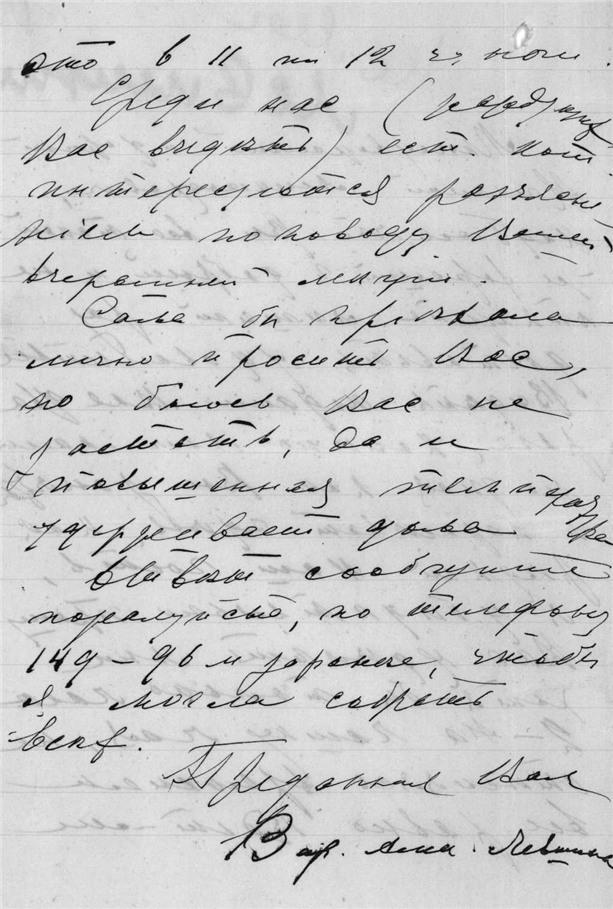 это в 11 ил 12 ч. ночи.
Среди нас (
Вас видѣть) ест. кот.
интересуются разъясне
ніем по поводу Вашей
вчерашней лекціи.
Сама бы пріѣхала
лично просить Вас,
но боюсь Вас не
застать, да и
повышенная температура
удерживает дома
Отвѣт сообщите
пожалуйста, по телефону
149-96 и заранѣе, чтобы
я могла собрать
всѣх.
Преданная Вам
Вар. Алек.